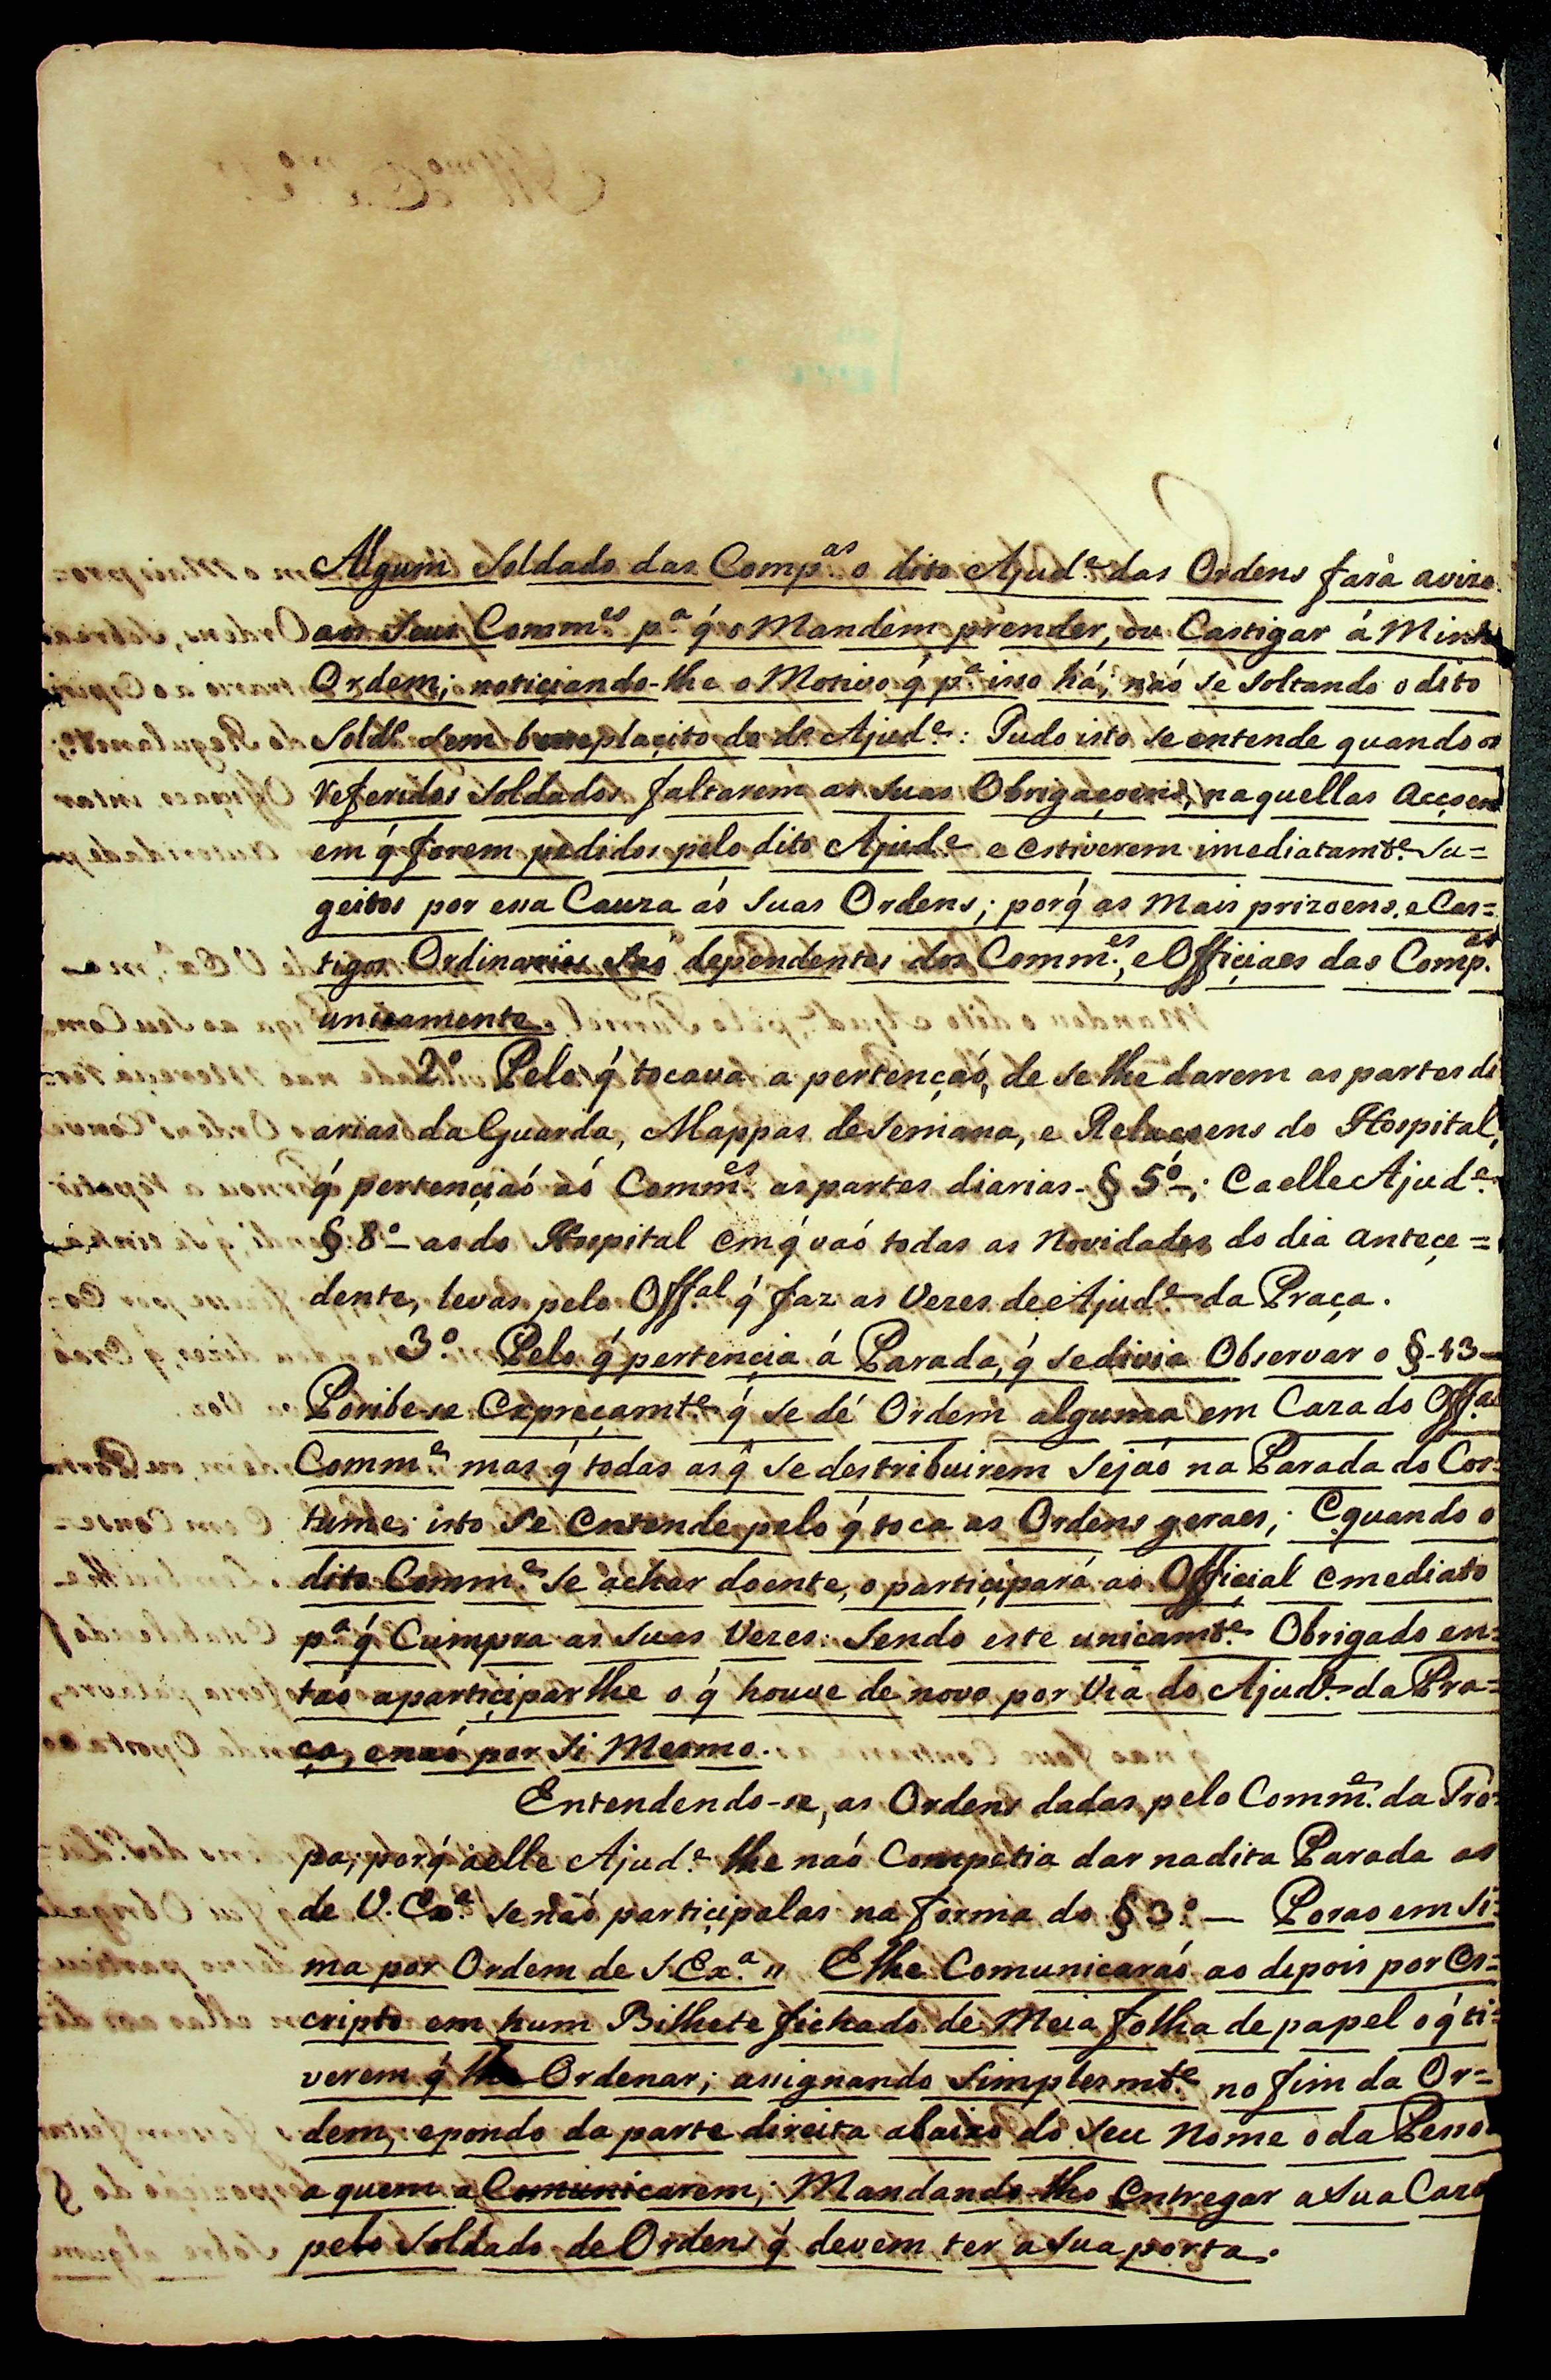 Algum Soldado das Comp.as o dito Ajud.e das Ordens fará avizo
aos Seus Comm.es p.a q́ o Mandem prender, ou Castigar á Minha
Ordem; noticiando-lhe o Motivo q́ p.a isso há; náo se Soltando o dito
Sold.o sem beneplaçito do d.o Ajud.e: Tudo isto se entende quando os
Referidos Soldados faltarem as Suas Obrigaçoens, naquellas Acçoens
em q́ forem pedidos pelo dito Ajud.e e estiverem imediatam.te Su=
geitos por essa Cauza ás Suas Ordens; porq́ as Mais prizoens, e Cas=
tigos Ordinarios Sáo dependentes dos Comm.es, e Offiçiaes das Comp.as
unicamente.
2º Pelo q́ tocava a pertençáo, de se lhe darem as partes di
arias da Guarda, Mappas de Semana, e Relaçoens do Hospital,
q́ pertençiáó ás Comm.es as partes diarias - § 5º-; E a elle Ajud.e
§ 8º - as do Hospital em q́ váó todas as Novidades do dia anteçe=
dente, levas pelo Off.al q́ faz as Vezes de Ajud.e da Praça.
3º Pelo q́ pertençia á Parada, q́ se divia Observar o §-13-
Poribe-se Expreçam.te q́ se dé Ordem alguma em Caza do Off.al
Comm.e mas q́ todas as q́ se destribuirem Sejáó na Parada do Cos=
tume; isto Se Entende pelo q́ toca as Ordens geraes; E quando o
dito Comm.e Se achar doente, o partiçipará ao Offiçial emediato
p.a q́ Cumpra as Suas Vezes: Sendo este unicam.te Obrigado en=
táó a partiçipar lhe o q́ houve de novo por Via do Ajud.e da Pra=
ça, e náó por Si Mesmo.
Entendendo-se, as Ordens dadas pelo Comm.e da Tro=
pa, porq́ a elle Ajud.e lhe náó Competia dar na dita Parada as
de V. Ex.a se náó partiçipalas na forma do § 3º — Poras em Si=
ma por Ordem de S. Ex.a „ E lhe Comunicaráó ao depois por Es=
cripto em hum Bilhete fichado de Meia folha de papel o q́ ti=
verem q́ lhe Ordenar; assignando Simplesm.te no fim da Or=
dem, e pondo da parte direita abaixo do Seu Nome o da Pessoa
a quem a Comunicarem; Mandando-lho Entregar a Sua Caza
pelo Soldado de Ordens q́ devem ter a Sua porta.